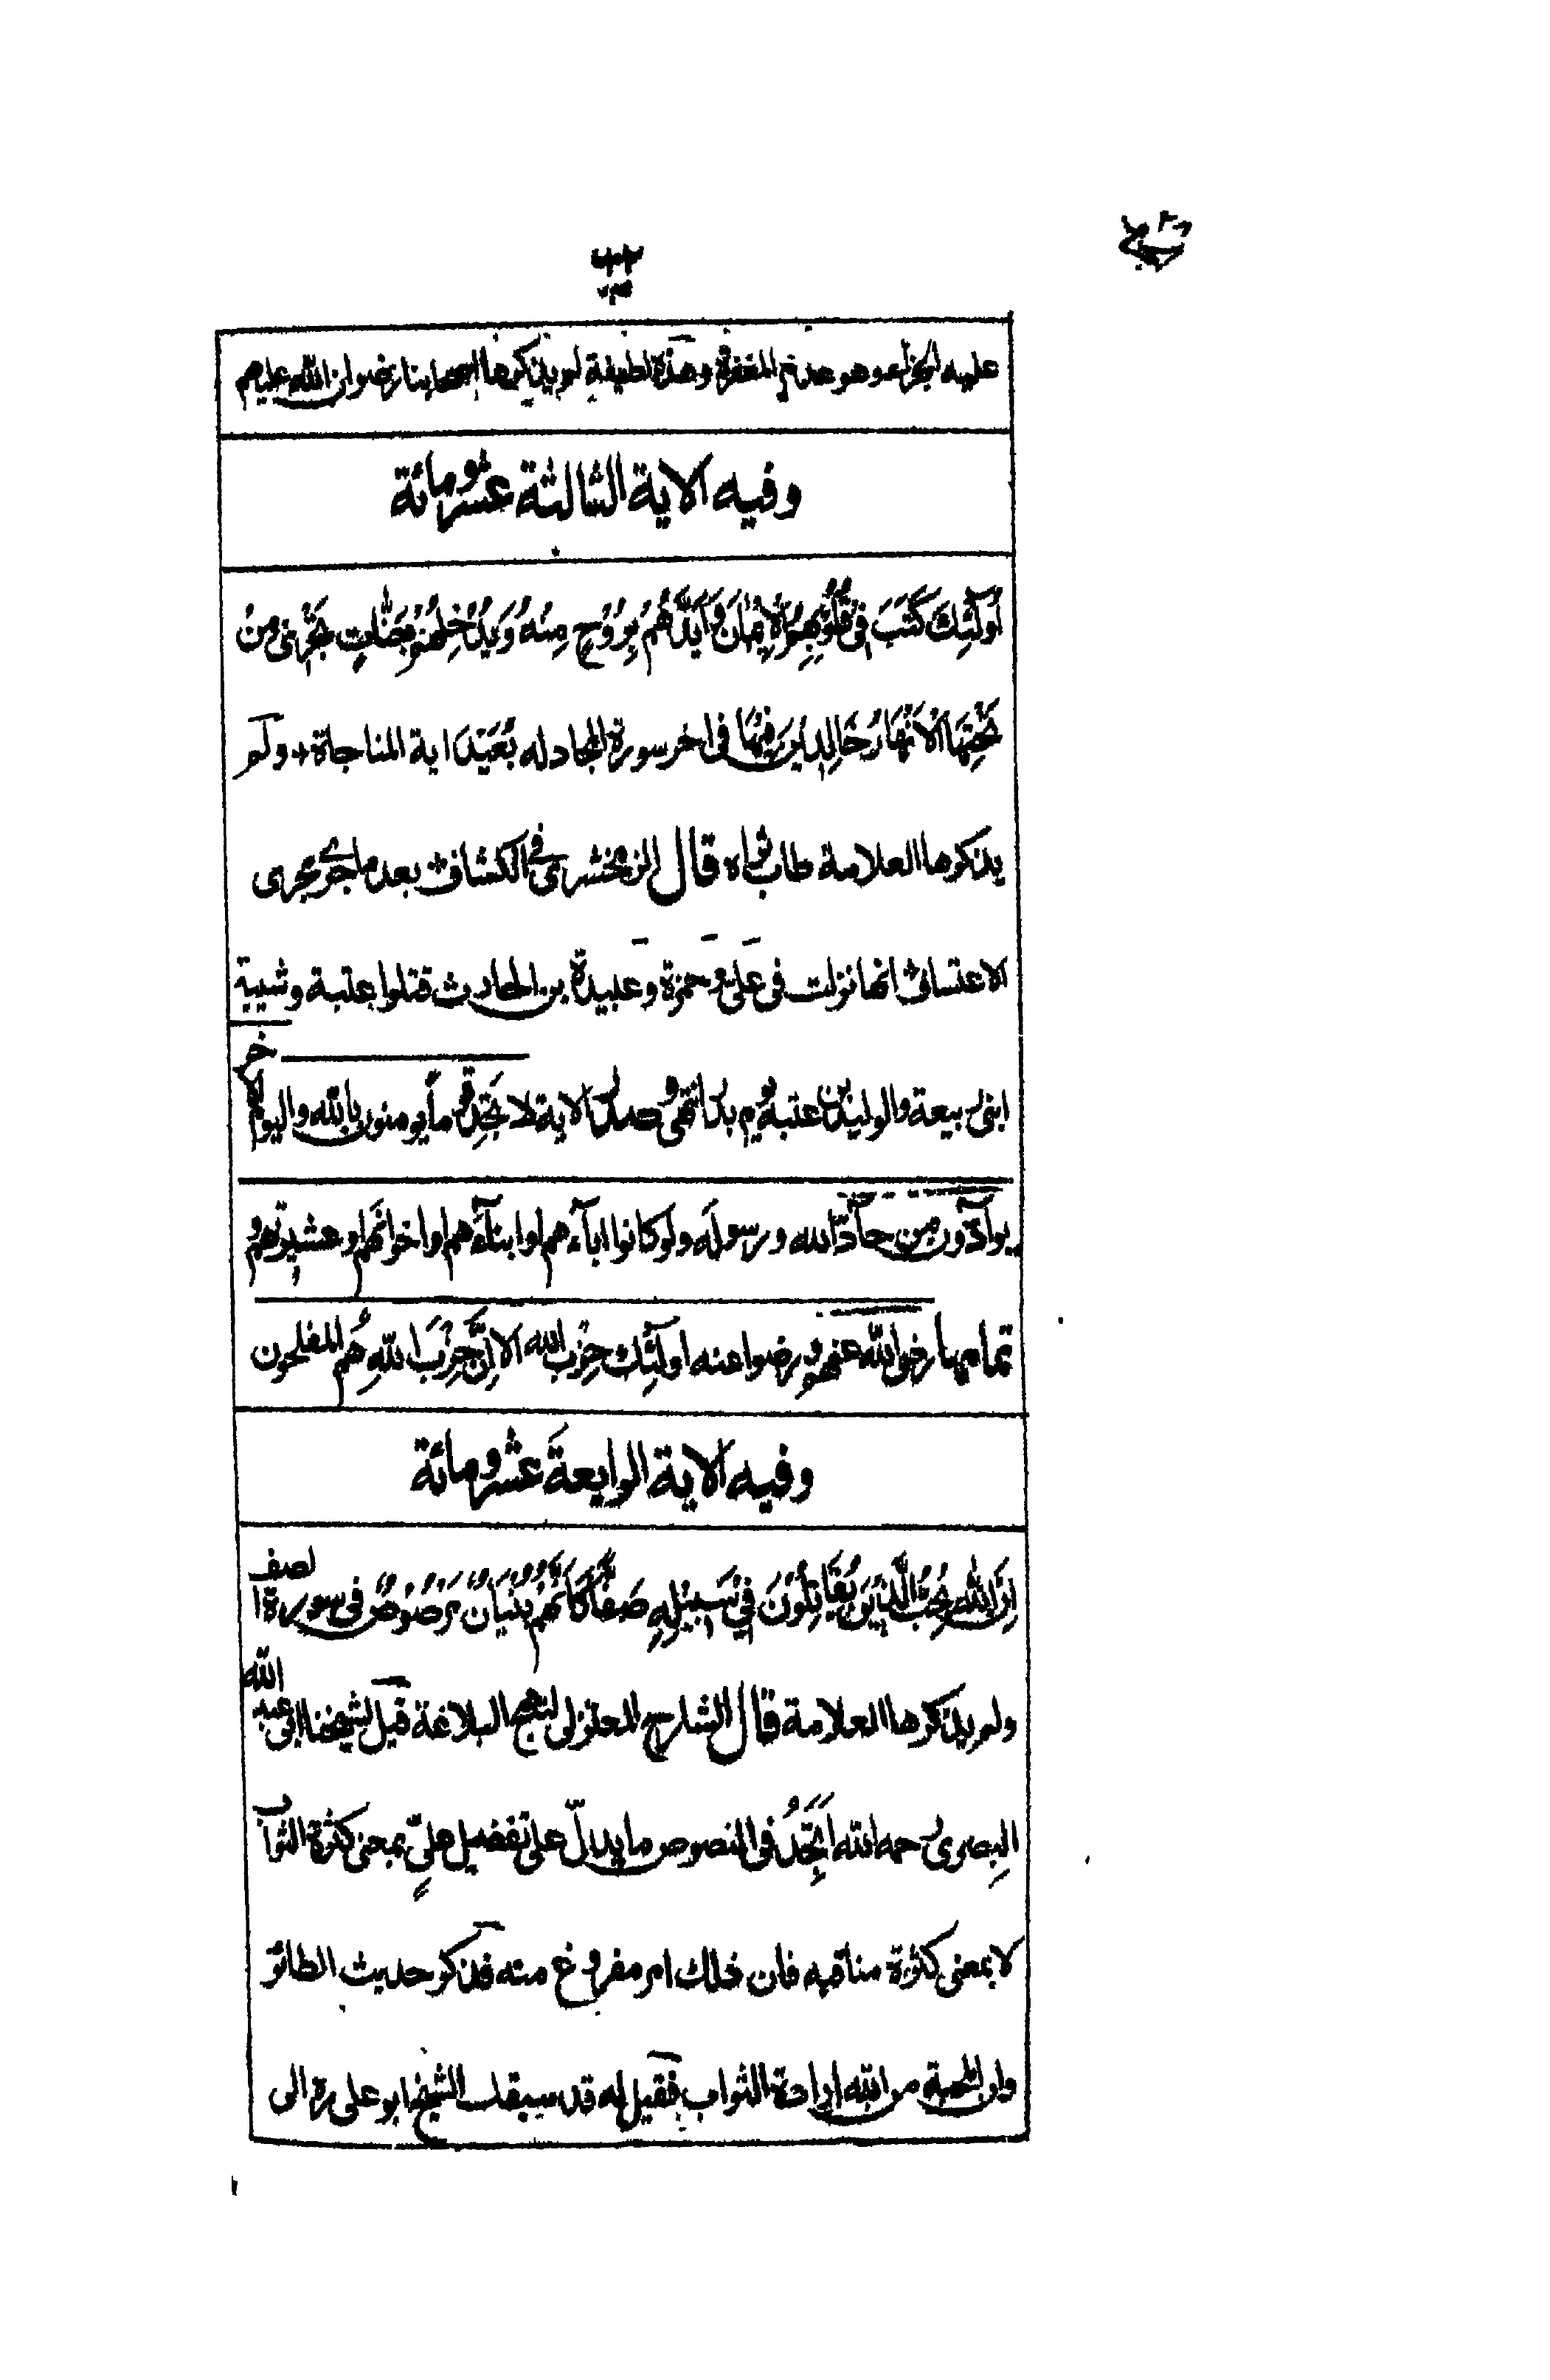 عليه الجزاء وهو عدم المغفرة وهذه لطيفة لم يذكرها اصحابنا رضوان الله عليهم
وفيه الاية الثالثة عشر ومائة
اُولٰٓئِكَ كَتَبَ فِیْ قُلُوْبِهِمُ الْاِیْمَانَ وَاَیَّدَهُمْ بِرُوْحٍ مِنْهُ وَیُدْخِلُهُمْ جَنَّاتٍ تَجْرِیْ مِنْ
تَحْتِهَا الْاَنْهَارُ خَالِدِیْنَ فِیْهَا فی اخر سورة المجادله بُعَیْدَ اية المناجاة + ولم
يذكرها العلامة طاب ثراه قال الزمخشری فی الكشاف بعد ما جری مجری
الاعتساف انها نزلت فی علی و حمزة وعبيدة بن الحارث قتلوا عتبة وشيبة
ابنی ربيعة والوليد بن عتبة يوم بدر انتهی وصدر الاية لا تَجِدُ قوماً يومنون بالله واليوم الاخر
يوآدّون من حآدّ الله ورسوله ولو كانوا اباءهم او ابناءهم او اخوانهم او عشيرتهم و
تمامها رضی الله عنهم ورضوا عنه اولٓئِك حِزْب الله الا اِنَّ حِزْبَ اللهِ هُم المفلحون
وفيه الاية الرابعة عشر ومائة
اِنَّ اللهَ یُحِبُّ الَّذِیْنَ یُقَاتِلُوْنَ فِیْ سَبِیْلِهٖ صَفًّا كَاَنَّهُمْ بُنْیَانٌ مَرْصُوْصٌ فی سورة الصف
ولم يذكرها العلامة قال الشارح المعتزلی لنهج البلاغة قيل لشيخنا ابی عبد الله
البصری رحمه الله اَتَجِدُ فی النصوص ما يدلّ علی تفضيل علیٍّ بمعنی كثرة الثواب
لا بمعنی كثرة مناقبه فان ذلك امر مفروغ منه فذكر حديث الطائر
وان المحبة من الله ارادة الثواب فقيل له قد سبقك الشيخ ابو علی ره الی